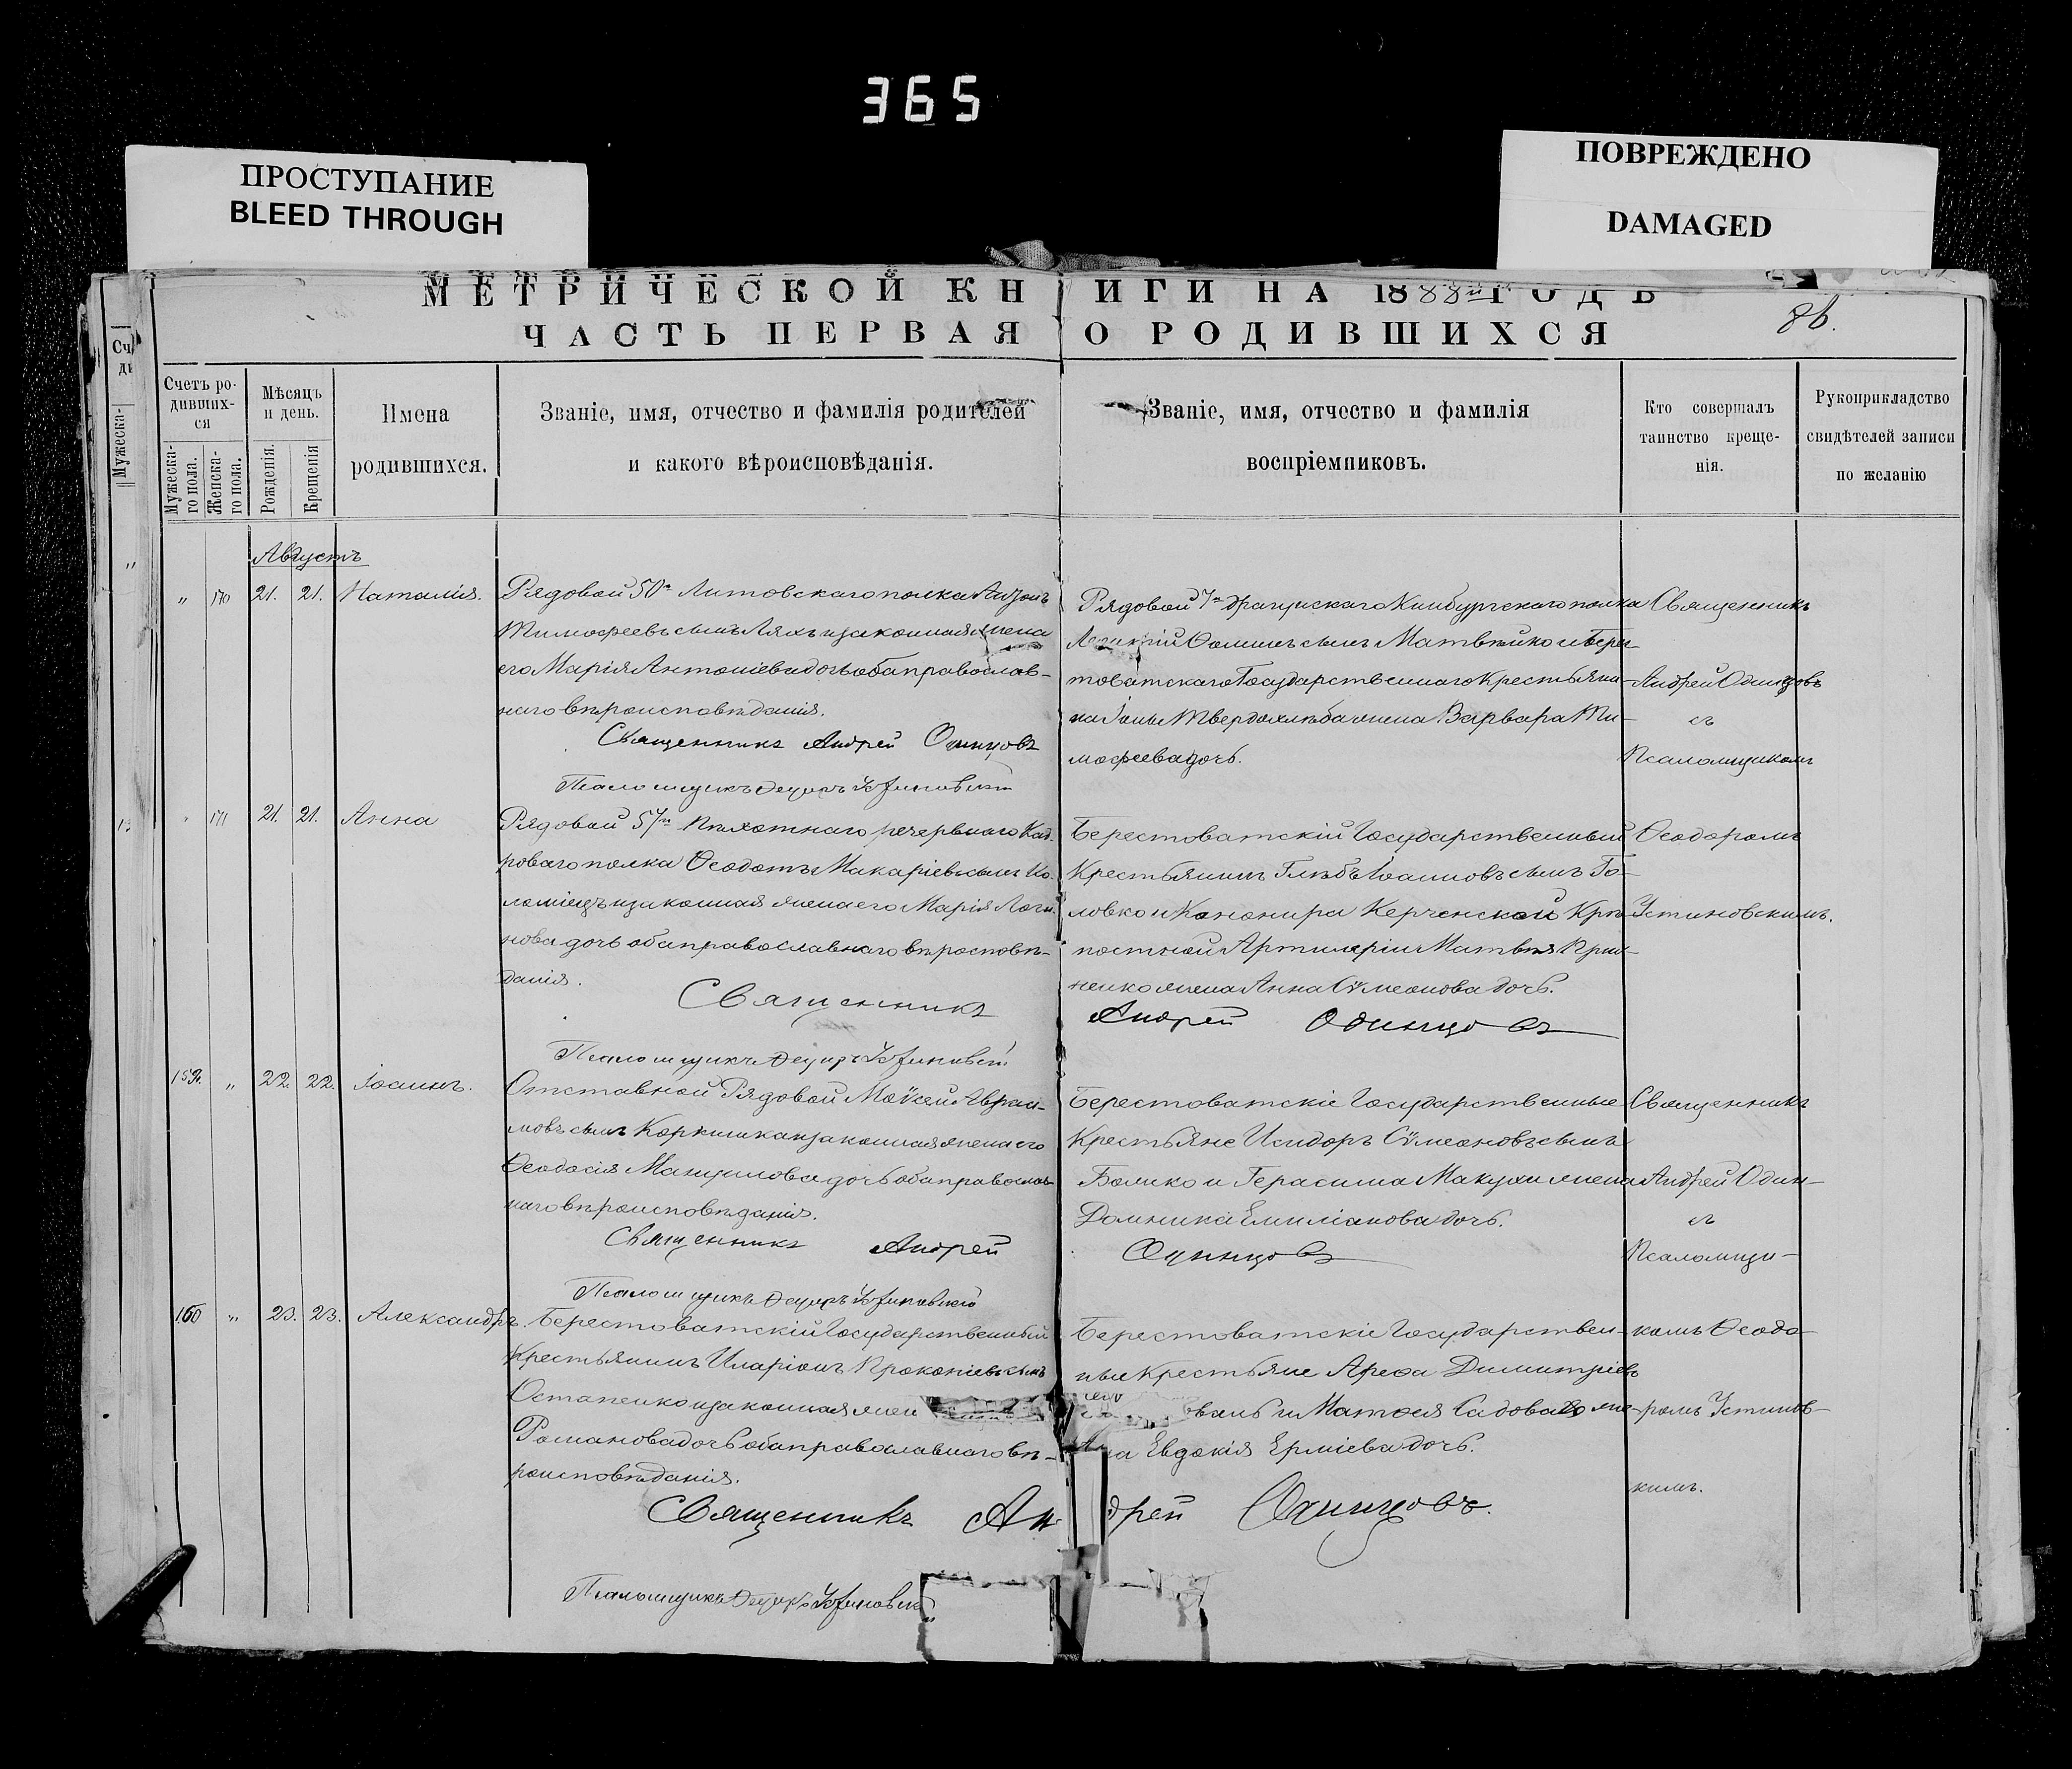 365
ПРОСТУПАНИЕ
BLEED THROUGH
ПОВРЕЖДЕНО
DAMAGED
МЕТРИЧЕСКОЙ КНИГИ НА 1888й ГОДЪ
86.
ЧАСТЬ ПЕРВАЯ О РОДИВШИХСЯ
Счетъ ро-
дивших-
ся
Мужеска-
го пола.
Женска-
го пола.
Мѣсяцъ
и день.
Рожденія.
Крещенія
Имена
родившихся.
Званіе, имя, отчество и фамилія родителей
и какого вѣроисповѣданія.
Званіе, имя, отчество и фамилія
воспріемниковъ.
Кто совершалъ
таинство креще-
нія.
Рукоприкладство
свидѣтелей записи
по желанію
Августъ
" 170 21. 21. Наталія.
Рядовой 50го Литовскаго полка
Тимофеевъ сынъ Ляхъ и законная жена
его Марія Антоніева дочь оба православ-
наго вѣроисповѣданія.
Священникъ Андрей Одинцовъ
Псаломщикъ Ѳедоръ Устиновскій
Рядовой 7го драгунскаго Кинбургскаго полка
Ѳоминъ сынъ Матвѣйко и Бере-
товатскаго Государственнаго Крестьяни-
на Іоны Твердохлѣба жена Варвара Ти-
мофеева дочь.
Священникъ
Андрей Одинцовъ
съ
Псаломщикомъ
" 171 21. 21. Анна
Рядовой 57го Пѣхотнаго резервнаго Кад-
роваго полка Ѳеодотъ Макаріевъ сынъ Ко-
ломіецъ и законная жена его Марія Логи-
нова дочь оба православнаго вѣроисповѣ-
данія.
Священникъ
Псаломщикъ Ѳедоръ Устиновскій
Берестоватскій Государственный
Крестьянинъ Глѣбъ Іоанновъ сынъ Го-
ловко и Канонира Керченской Крѣ-
постной Артилеріи Матвѣя
жена Анна Сѵмеонова дочь.
Андрей Одинцовъ
Ѳеодоромъ
Устиновскимъ.
159. " 22. 22. Іоаннъ.
Отставной Рядовой Моѵсей Авраа-
мовъ сынъ и законная жена его
Ѳеодосія Мануилова дочь оба православ-
наго вѣроисповѣданія.
Священникъ Андрей
Псаломщикъ Ѳедоръ Устиновскій
Берестоватскіе Государственные
Крестьяне Исидоръ Сѵмеоновъ сынъ
и Герасима Макухи жена
Домникія Емиліанова дочь.
Одинцовъ
Священникъ
Андрей Один-
съ
Псаломщи-
160 " 23. 23. Александръ.
Берестоватскій Государственный
Крестьянинъ Иларіонъ Прокопіевъ сынъ
Остапенко и законная жен
Романова дочь оба православнаго вѣ-
роисповѣданія.
Священникъ Андрей Одинцовъ.
Псаломщикъ Ѳедоръ Устиновскій
Берестоватскіе Государствен-
ные Крестьяне Арефа Димитріевъ
и Матѳея Садоваго же-
на Евдокія Ерміева дочь.
комъ Ѳеодо-
ромъ Устинов-
кимъ.